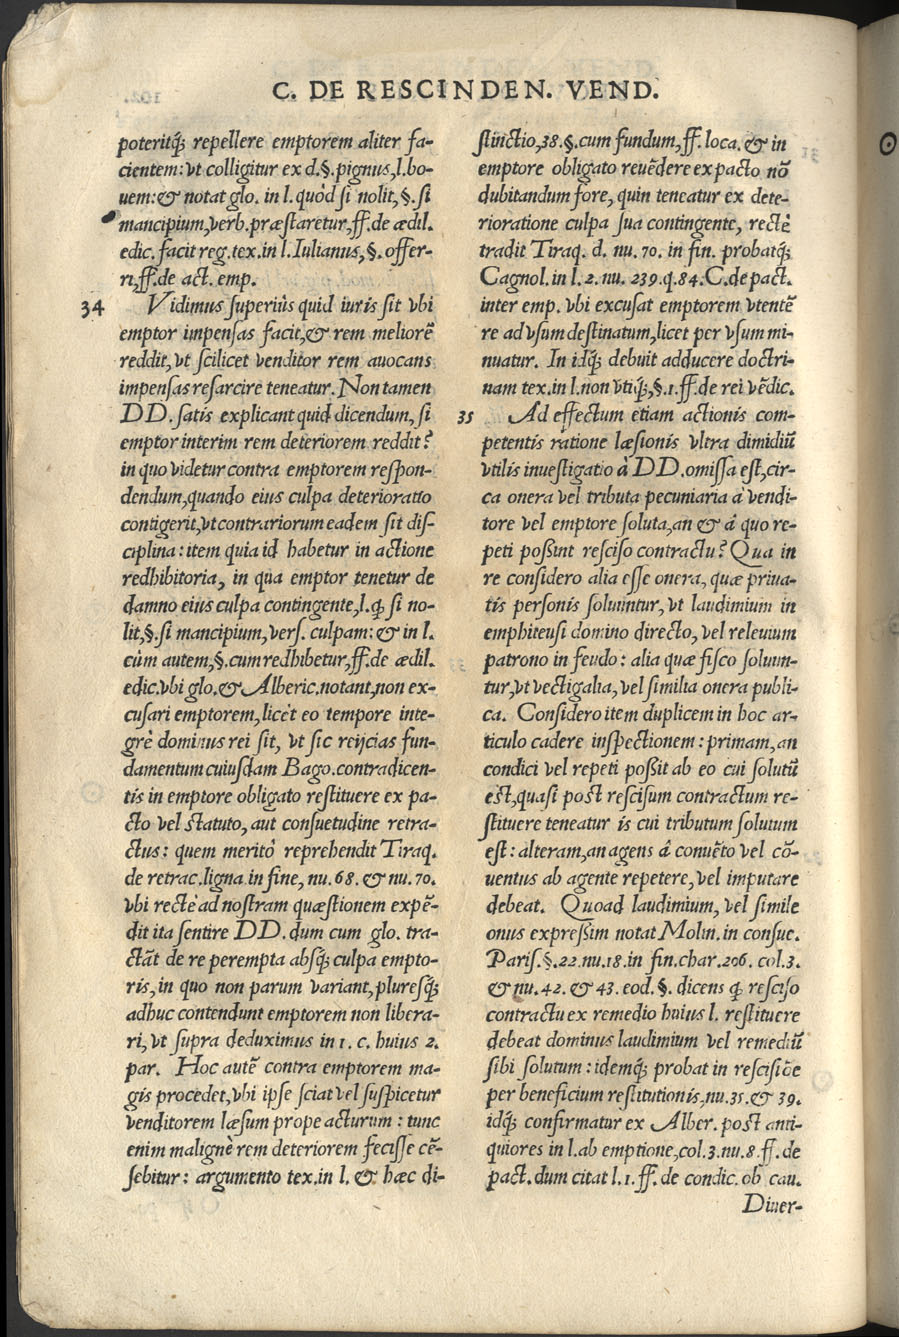 C. DE RESCINDEN. VEND.
poteritq́; repellere emptorem aliter fa-
cientem: vt colligitur ex d.§.pignus,l.bo-
uem: & notat glo. in l. quòd si nolit, §. si
mancipium, verb. præstaretur, ff. de ædil.
edic. facit reg. tex. in l. Iulianus, §. offer-
ri, ff. de act. emp.
34 Vidimus superiùs quid iuris sit vbi
emptor impensas facit, & rem meliorẽ
reddit, vt scilicet venditor rem auocans
impensas resarcire teneatur. Non tamen
DD. satis explicant quid dicendum, si
emptor interim rem deteriorem reddit?
in quo videtur contra emptorem respon-
dendum, quando eius culpa deterioratio
contigerit, vt contrariorum eadem sit dis-
ciplina: item quia id habetur in actione
redhibitoria, in qua emptor tenetur de
damno eius culpa contingente, l. ꝙ si no-
lit, §. si mancipium, vers. culpam: & in l.
cùm autem, §. cum redhibetur, ff. de ædil.
edic. vbi glo. & Alberic. notant, non ex-
cusari emptorem, licèt eo tempore inte-
grè dominus rei sit, vt sic reijcias fun-
damentum cuiusdam Bago. contradicen-
tis in emptore obligato restituere ex pa-
cto vel statuto, aut consuetudine retra-
ctus: quem meritò reprehendit Tiraq.
de retrac. ligna. in fine, nu. 68. & nu. 70.
vbi rectè ad nostram quæstionem expẽ-
dit ita sentire DD. dum cum glo. tra-
ctãt de re perempta absq́; culpa empto-
ris, in quo non parum variant, pluresq́;
adhuc contendunt emptorem non libera-
ri, vt supra deduximus in 1. c. huius 2.
par. Hoc autẽ contra emptorem ma-
gis procedet, vbi ipse sciat vel suspicetur
venditorem læsum prope acturum: tunc
enim malignè rem deteriorem fecisse cẽ-
sebitur: argumento tex. in l. & hæc di-
stinctio, 38. §. cum fundum, ff. loca. & in
emptore obligato reuẽdere ex pacto nõ
dubitandum fore, quin teneatur ex dete-
rioratione culpa sua contingente, rectè
tradit Tiraq. d. nu. 70. in fin. probatq́;
Cagnol. in l. 2. nu. 239. q. 84. C. de pact.
inter emp. vbi excusat emptorem vtentẽ
re ad vsum destinatum, licet per vsum mi-
nuatur. In idq́; debuit adducere doctri-
nam tex. in l. non vtiq́;, §. 1. ff. de rei vẽdic.
35 Ad effectum etiam actionis com-
petentis ratione læsionis vltra dimidiũ
vtilis inuestigatio à DD. omissa est, cir-
ca onera vel tributa pecuniaria à vendi-
tore vel emptore soluta, an & à quo re-
peti possint resciso contractu? Qua in
re considero alia esse onera, quæ priua-
tis personis soluuntur, vt laudimium in
emphiteusi domino directo, vel releuium
patrono in feudo: alia quæ fisco soluun-
tur, vt vectigalia, vel similia onera publi-
ca. Considero item duplicem in hoc ar-
ticulo cadere inspectionem: primam, an
condici vel repeti possit ab eo cui solutũ
est, quasi post rescisum contractum re-
stituere teneatur is cui tributum solutum
est: alteram, an agens à conuẽto vel cõ-
uentus ab agente repetere, vel imputare
debeat. Quoad laudimium, vel simile
onus expressim notat Molin. in consue.
Paris. §. 22. nu. 18. in fin. char. 206. col. 3.
& nu. 42. & 43. eod. §. dicens ꝙ resciso
contractu ex remedio huius l. restituere
debeat dominus laudimium vel remediũ
sibi solutum: idemq́; probat in rescisiõe
per beneficium restitutionis, nu. 35. & 39.
idq́; confirmatur ex Alber. post anti-
quiores in l. ab emptione, col. 3. nu. 8. ff. de
pact. dum citat l. 1. ff. de condic. ob cau.
Diuer-